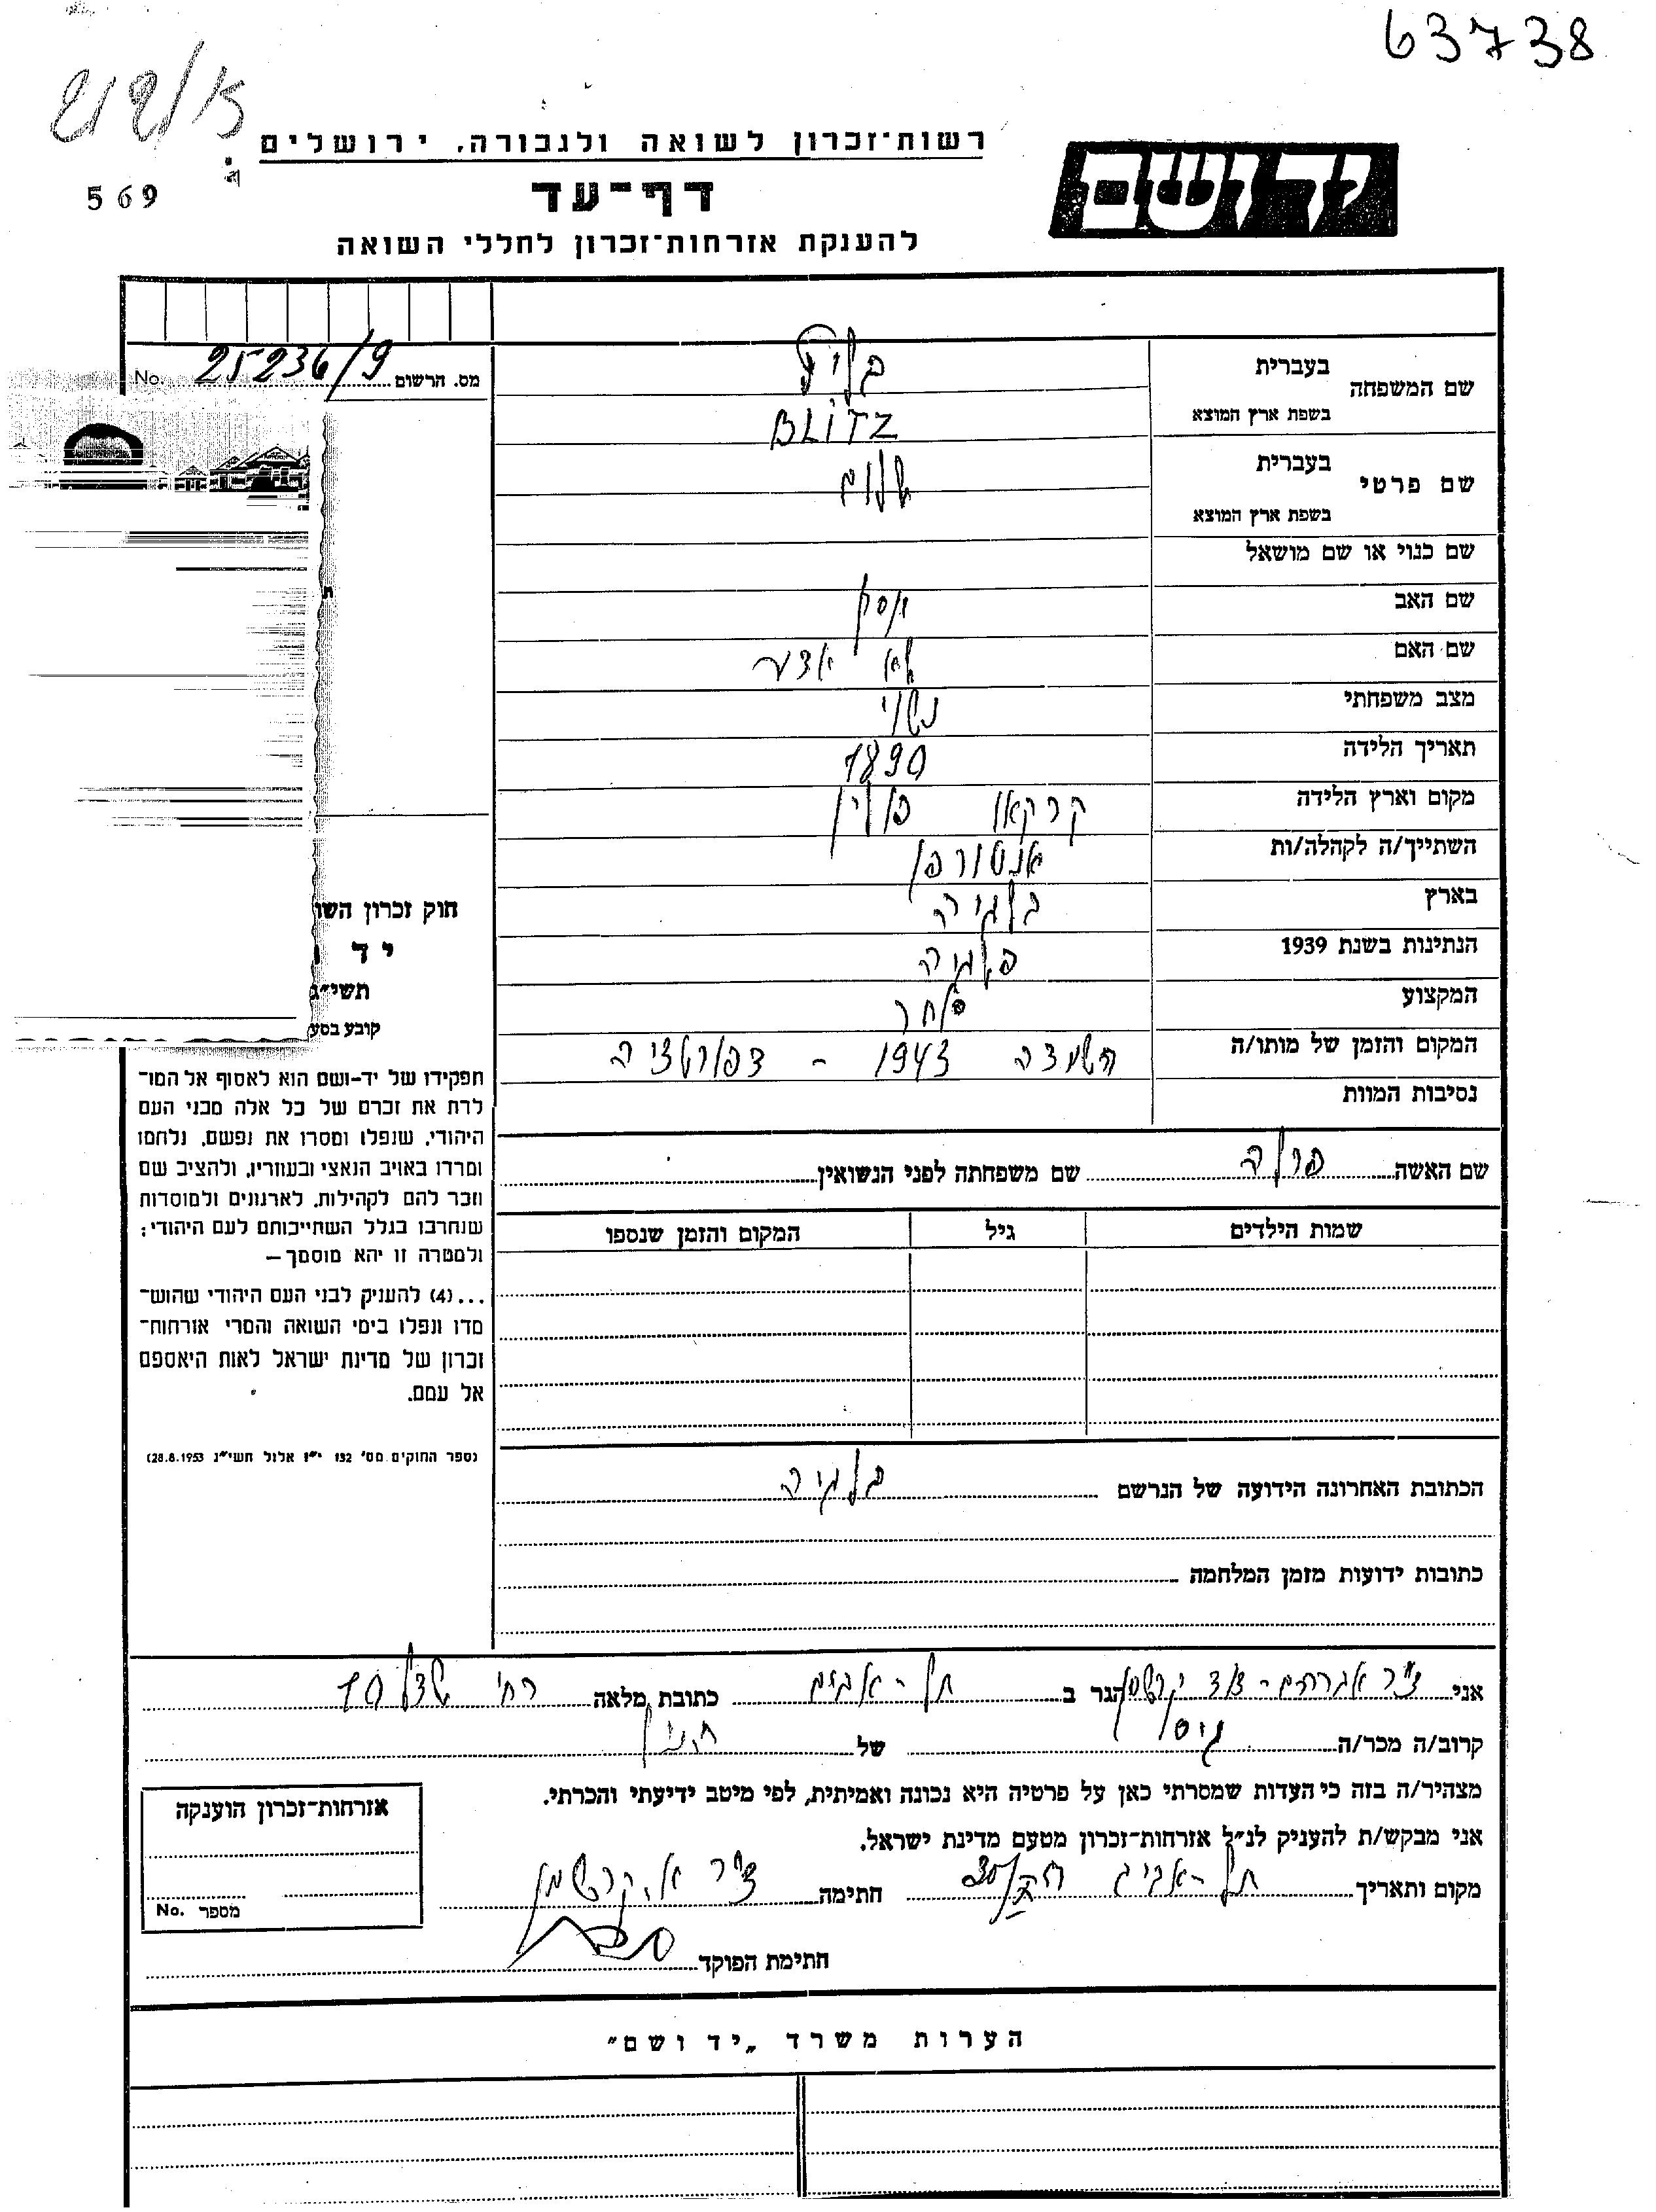 63738
569
רשות־זכרון לשואה ולגבורה, ירושלים
יד ושם
דף־עד
להענקת אזרחות־זכרון לחללי השואה
מס. הרשום 25236/9 No.
שם המשפחה
בעברית בליץ
בשפת ארץ המוצא BLITZ
שם פרטי
בעברית שלום
בשפת ארץ המוצא
שם כנוי או שם מושאל
שם האב יוסף
שם האם לאה
מצב משפחתי נשוי
תאריך הלידה 1890
מקום וארץ הלידה קרקאו פולין
השתייך/ה לקהלה/ות אנטורפן
בארץ בלגיה
הנתינות בשנת 1939 בלגיה
המקצוע סוחר
המקום והזמן של מותו/ה השמדה 1943 - דפורטציה
נסיבות המוות
שם האשה פרלה שם משפחתה לפני הנשואין
שמות הילדים גיל המקום והזמן שנספו
ת
חוק זכרון השו
יד ו
תשי״ג
קובע בסע
תפקידו של יד-ושם הוא לאסוף אל המו־
לדת את זכרם של כל אלה מבני העם
היהודי, שנפלו ומסרו את נפשם, נלחמו
ומרדו באויב הנאצי ובעוזריו, ולהציב שם
וזכר להם לקהילות, לארגונים ולמוסדות
שנחרבו בגלל השתייכותם לעם היהודי;
ולמטרה זו יהא מוסמך—
...(4) להעניק לבני העם היהודי שהוש־
מדו ונפלו בימי השואה והמרי אזרחות־
זכרון של מדינת ישראל לאות היאספם
אל עמם.
(ספר החוקים מס׳ 132 י״ז אלול תשי״ג 28.8.1953)
הכתובת האחרונה הידועה של הנרשם בלגיה
כתובות ידועות מזמן המלחמה
אני ד״ר אברהם - הגר ב תל-אביב כתובת מלאה רח׳ 10
קרוב/ה מכר/ה גיסו של
מצהיר/ה בזה כי העדות שמסרתי כאן על פרטיה היא נכונה ואמיתית, לפי מיטב ידיעתי והכרתי.
אני מבקש/ת להעניק לנ״ל אזרחות־זכרון מטעם מדינת ישראל.
מקום ותאריך תל-אביב חתימה ד״ר א.
חתימת הפוקד
אזרחות־זכרון הוענקה
מספר No.
הערות משרד „יד ושם״